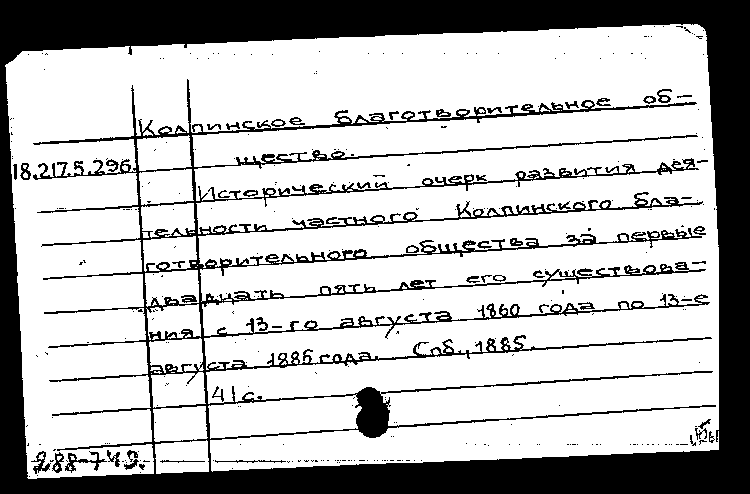 Колпинское благотворительное об-
18.217.5.296.
щество.
Исторический очерк развития дея-
тельности частного Колпинского бла-
готворительного общества за первые
двадцать пять лет его существова-
ния с 13-го августа 1860 года по 13-е
августа 1885 года. Спб., 1885.
41 с.
288-749.